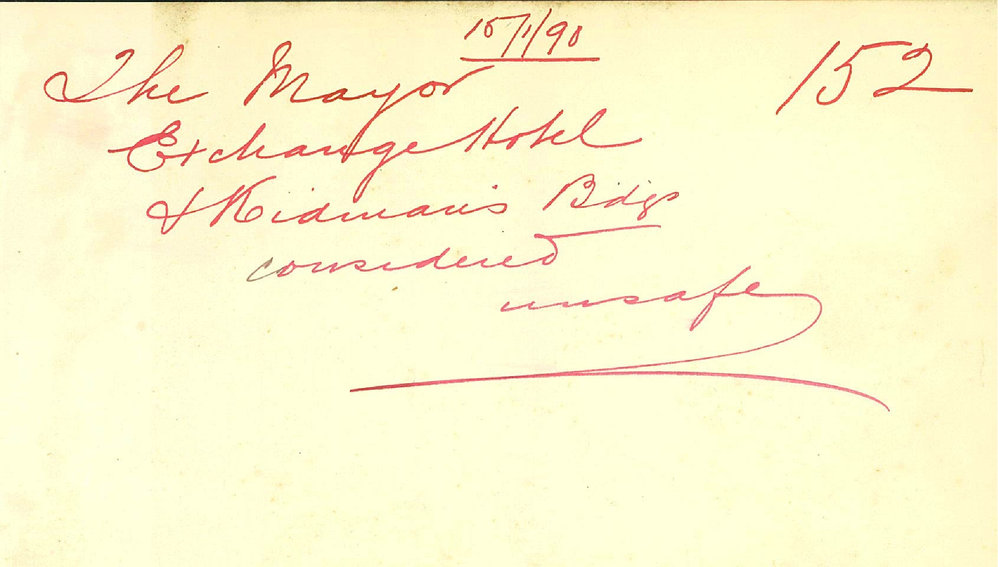 15/1/90
The Mayor 152
Exchange Hotel
& Kidman's Bdgs
considered
unsafe